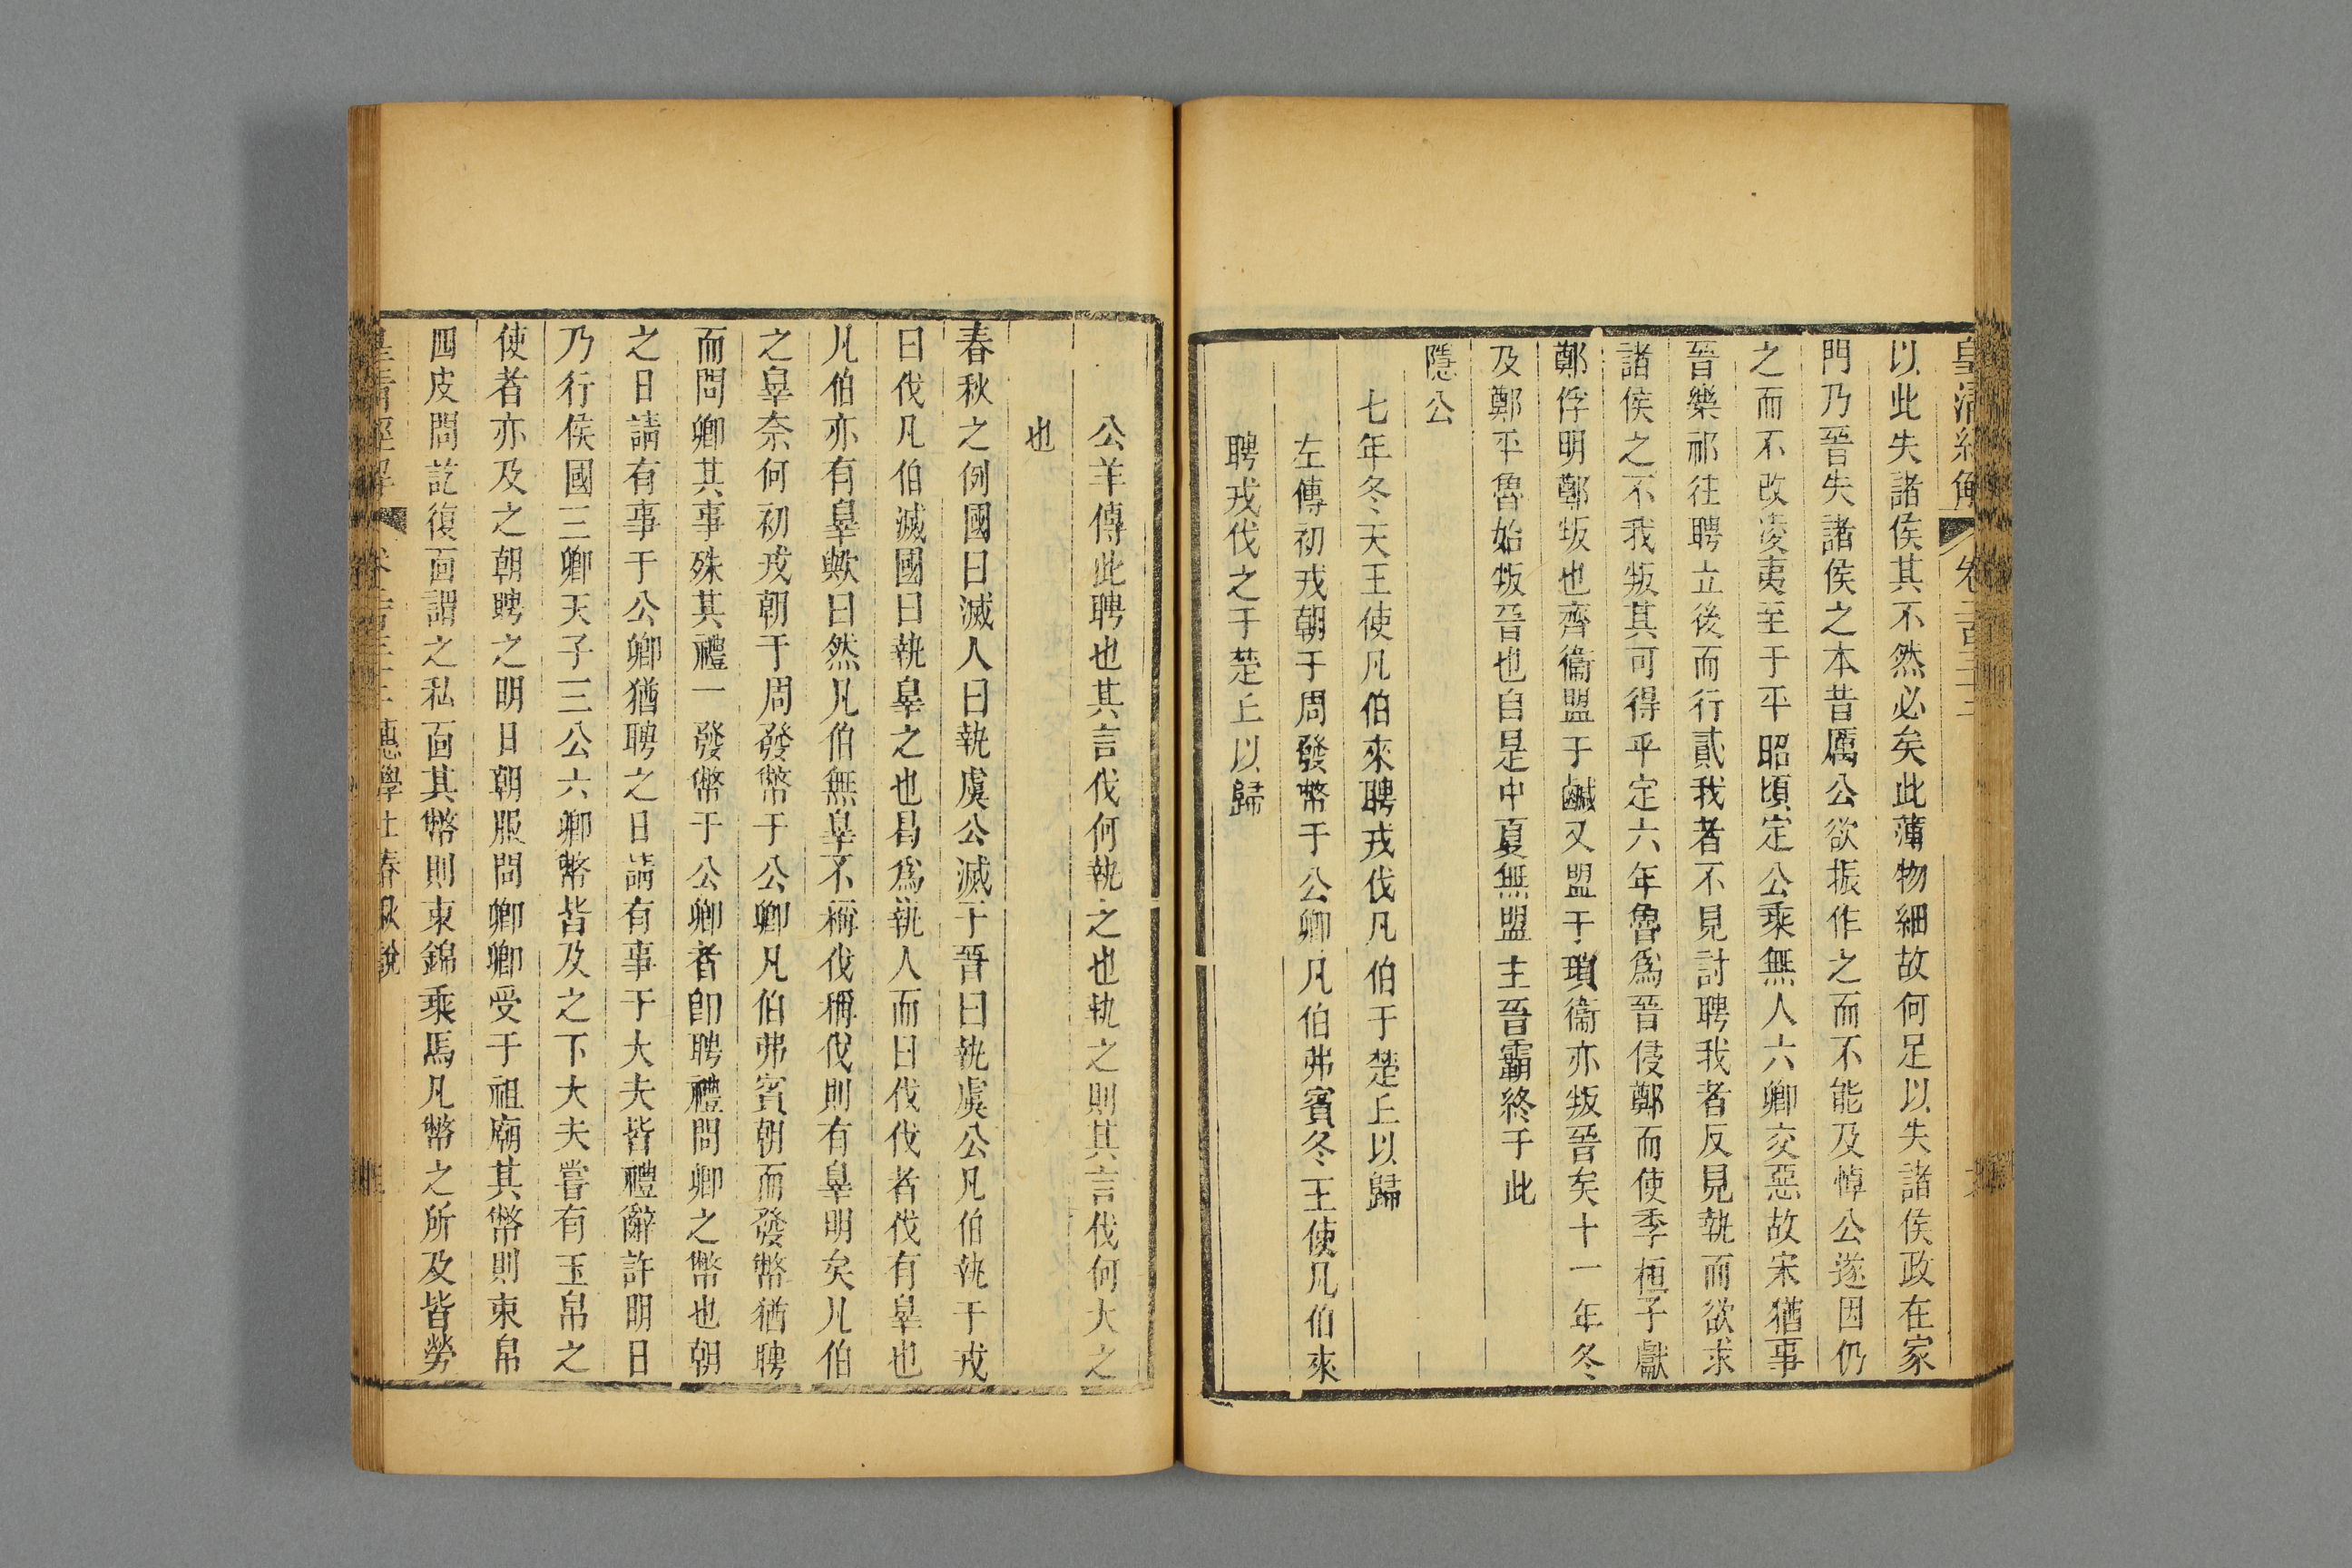 皇清經解 卷二百三十二
以此失諸侯其不然必矣此薄物細故何足以失諸侯政在家
門乃晉失諸侯之本昔厲公欲振作之而不能及悼公遂因仍
之而不改凌夷至于平昭頃定公乘無人六卿交惡故宋猶事
晉樂祁往聘立後而行貳我者不見討聘我者反見執而欲求
諸侯之不我叛其可得乎定六年魯為晉侵鄭而使季桓子獻
鄭俘明鄭叛也齊衞盟于鹹又盟于瑣衞亦叛晉矣十一年冬
及鄭平魯始叛晉也自是中夏無盟主晉霸終于此
隱公
七年冬天王使凡伯來聘戎伐凡伯于楚丘以歸
左傳初戎朝于周發幣于公卿凡伯弗賓冬王使凡伯來
聘戎伐之于楚丘以歸
公羊傳此聘也其言伐何執之也執之則其言伐何大之
也
春秋之例國曰滅人曰執虞公滅于晉曰執虞公凡伯執于戎
曰伐凡伯滅國曰執辠之也曷為執人而曰伐伐者伐有辠也
凡伯亦有辠歟曰然凡伯無辠不稱伐稱伐則有辠明矣凡伯
之辠奈何初戎朝于周發幣于公卿凡伯弗賓朝而發幣猶聘
而問卿其事殊其禮一發幣于公卿者卽聘禮問卿之幣也朝
之日請有事于公卿猶聘之日請有事于大夫皆禮辭許明日
乃行侯國三卿天子三公六卿幣皆及之下大夫嘗有玉帛之
使者亦及之朝聘之明日朝服問卿卿受于祖廟其幣則束帛
四皮問訖復面謂之私面其幣則束錦乘馬凡幣之所及皆勞
皇清經解 惠學士春秋說